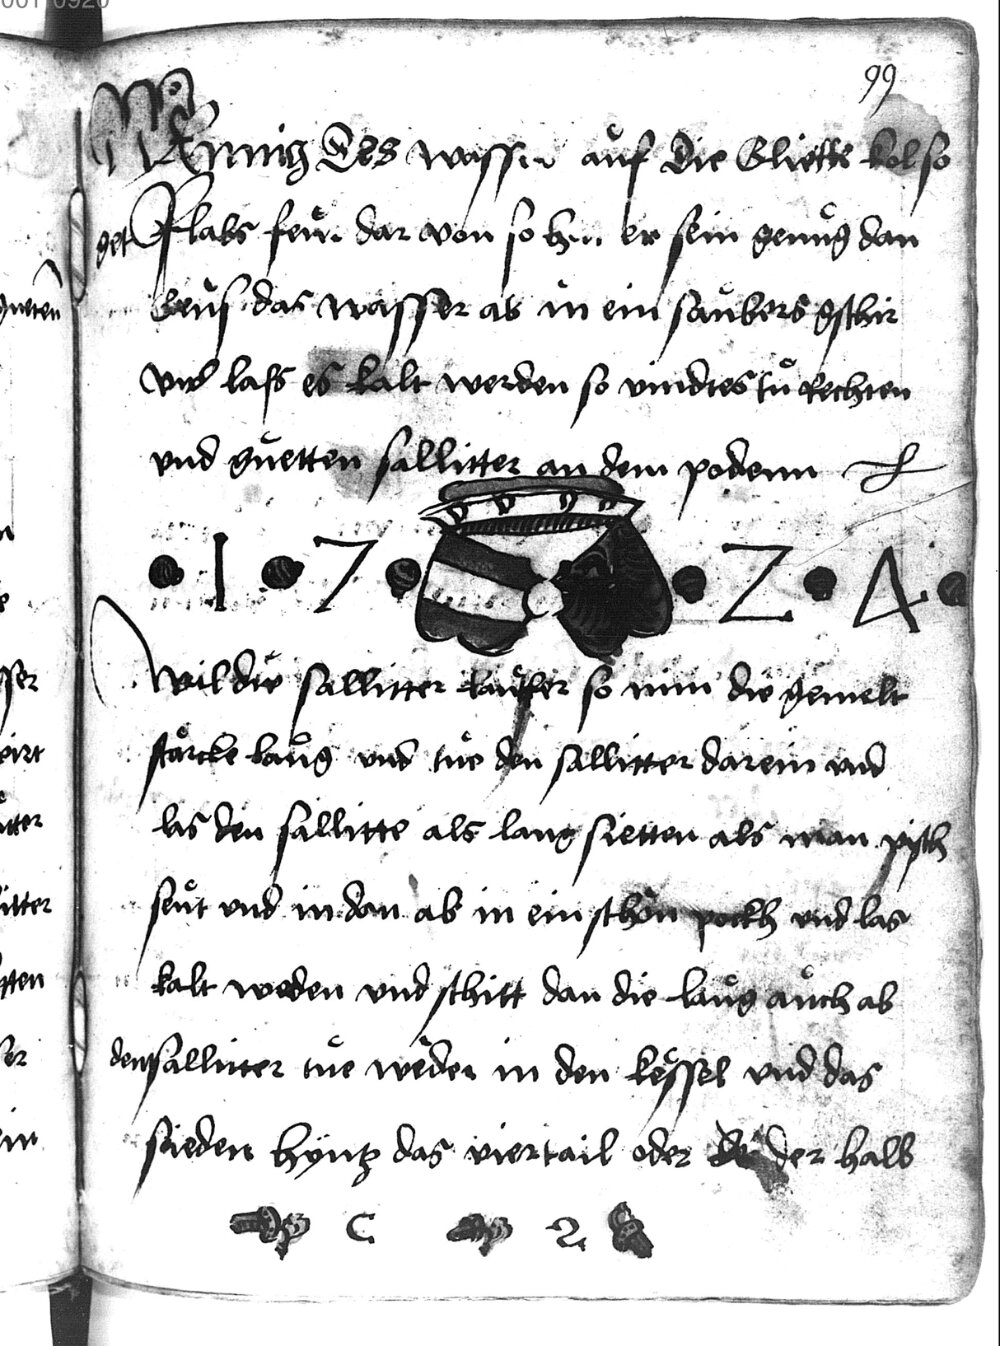 99
Wenig des wasser auf die Gliette kol so
get Plabs feür dar von so hat er sein genüg dan
seüs das wasser ab in ein saübers gschir
vnd lass es kalt werden so vindtes tü Rechten
vnd güetten sallitter an dem podenn
1 7 2 4
Wil dü sallitter leütter so nim die gemelt
starcke laüg vnd tüe den sallitter darein vnd
las den sallitte als lang sietten als man visch
seüt vnd in dan ab in ein schön pockh vnd las
kalt weden vnd schitt dan die laüg aüch ab
den sallitter tüe weder in den kessel vnd das
sieden hyntz das viertail oder der halb
C 2
gueten
sser
wirt
itter
sitter
etten
ser
ein